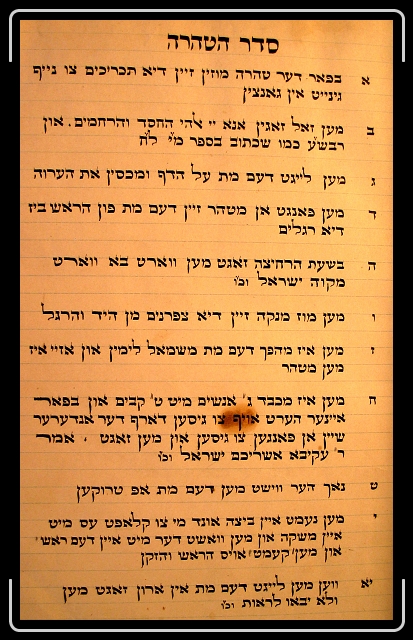 סדר הטהרה
א בפאר דער טהרה מוזין זיין דיא תכריכים צו נייף
גינייט אין גאנצין
ב מען זאל זאגין אנא יי אלהי החסד והרחמים. און
רבש"ע כמו שכתוב בספר מ"י ל"ח
ג מען לייגט דעם מת על הדף ומכסין את הערוה
ד מען פאנגט אן מטהר זיין דעם מת פון הראש ביז
דיא רגלים
ה בשעת הרחיצה זאגט מען ווארט בא ווארט
מקוה ישראל וכו'
ו מען מוז מנקה זיין דיא צפרנים מן היד והרגל
ז מען איז מהפך דעם מת משמאל לימין און אזיי איז
מען מטהר
ח מען איז מכבד ג' אנשים מיט ט' קבים און בפאר
איינער הערט אויף צו גיסען דארף דער אנדערער
שיין אן פאנגען צו גיסען און מען זאגט. אמר
ר' עקיבא אשריכם ישראל וכו'
ט נאך הער ווישט מען דעם מת אפ טרוקען
י מען נעמט איין ביצה אונד מי צו קלאפט עס מיט
איין משקה און מען וואשט דער מיט איין דעם ראש
און מען קעמט אויס הראש והזקן
יא ווען מען לייגט דעם מת אין ארון זאגט מען
ולא יבאו לראות וכו'